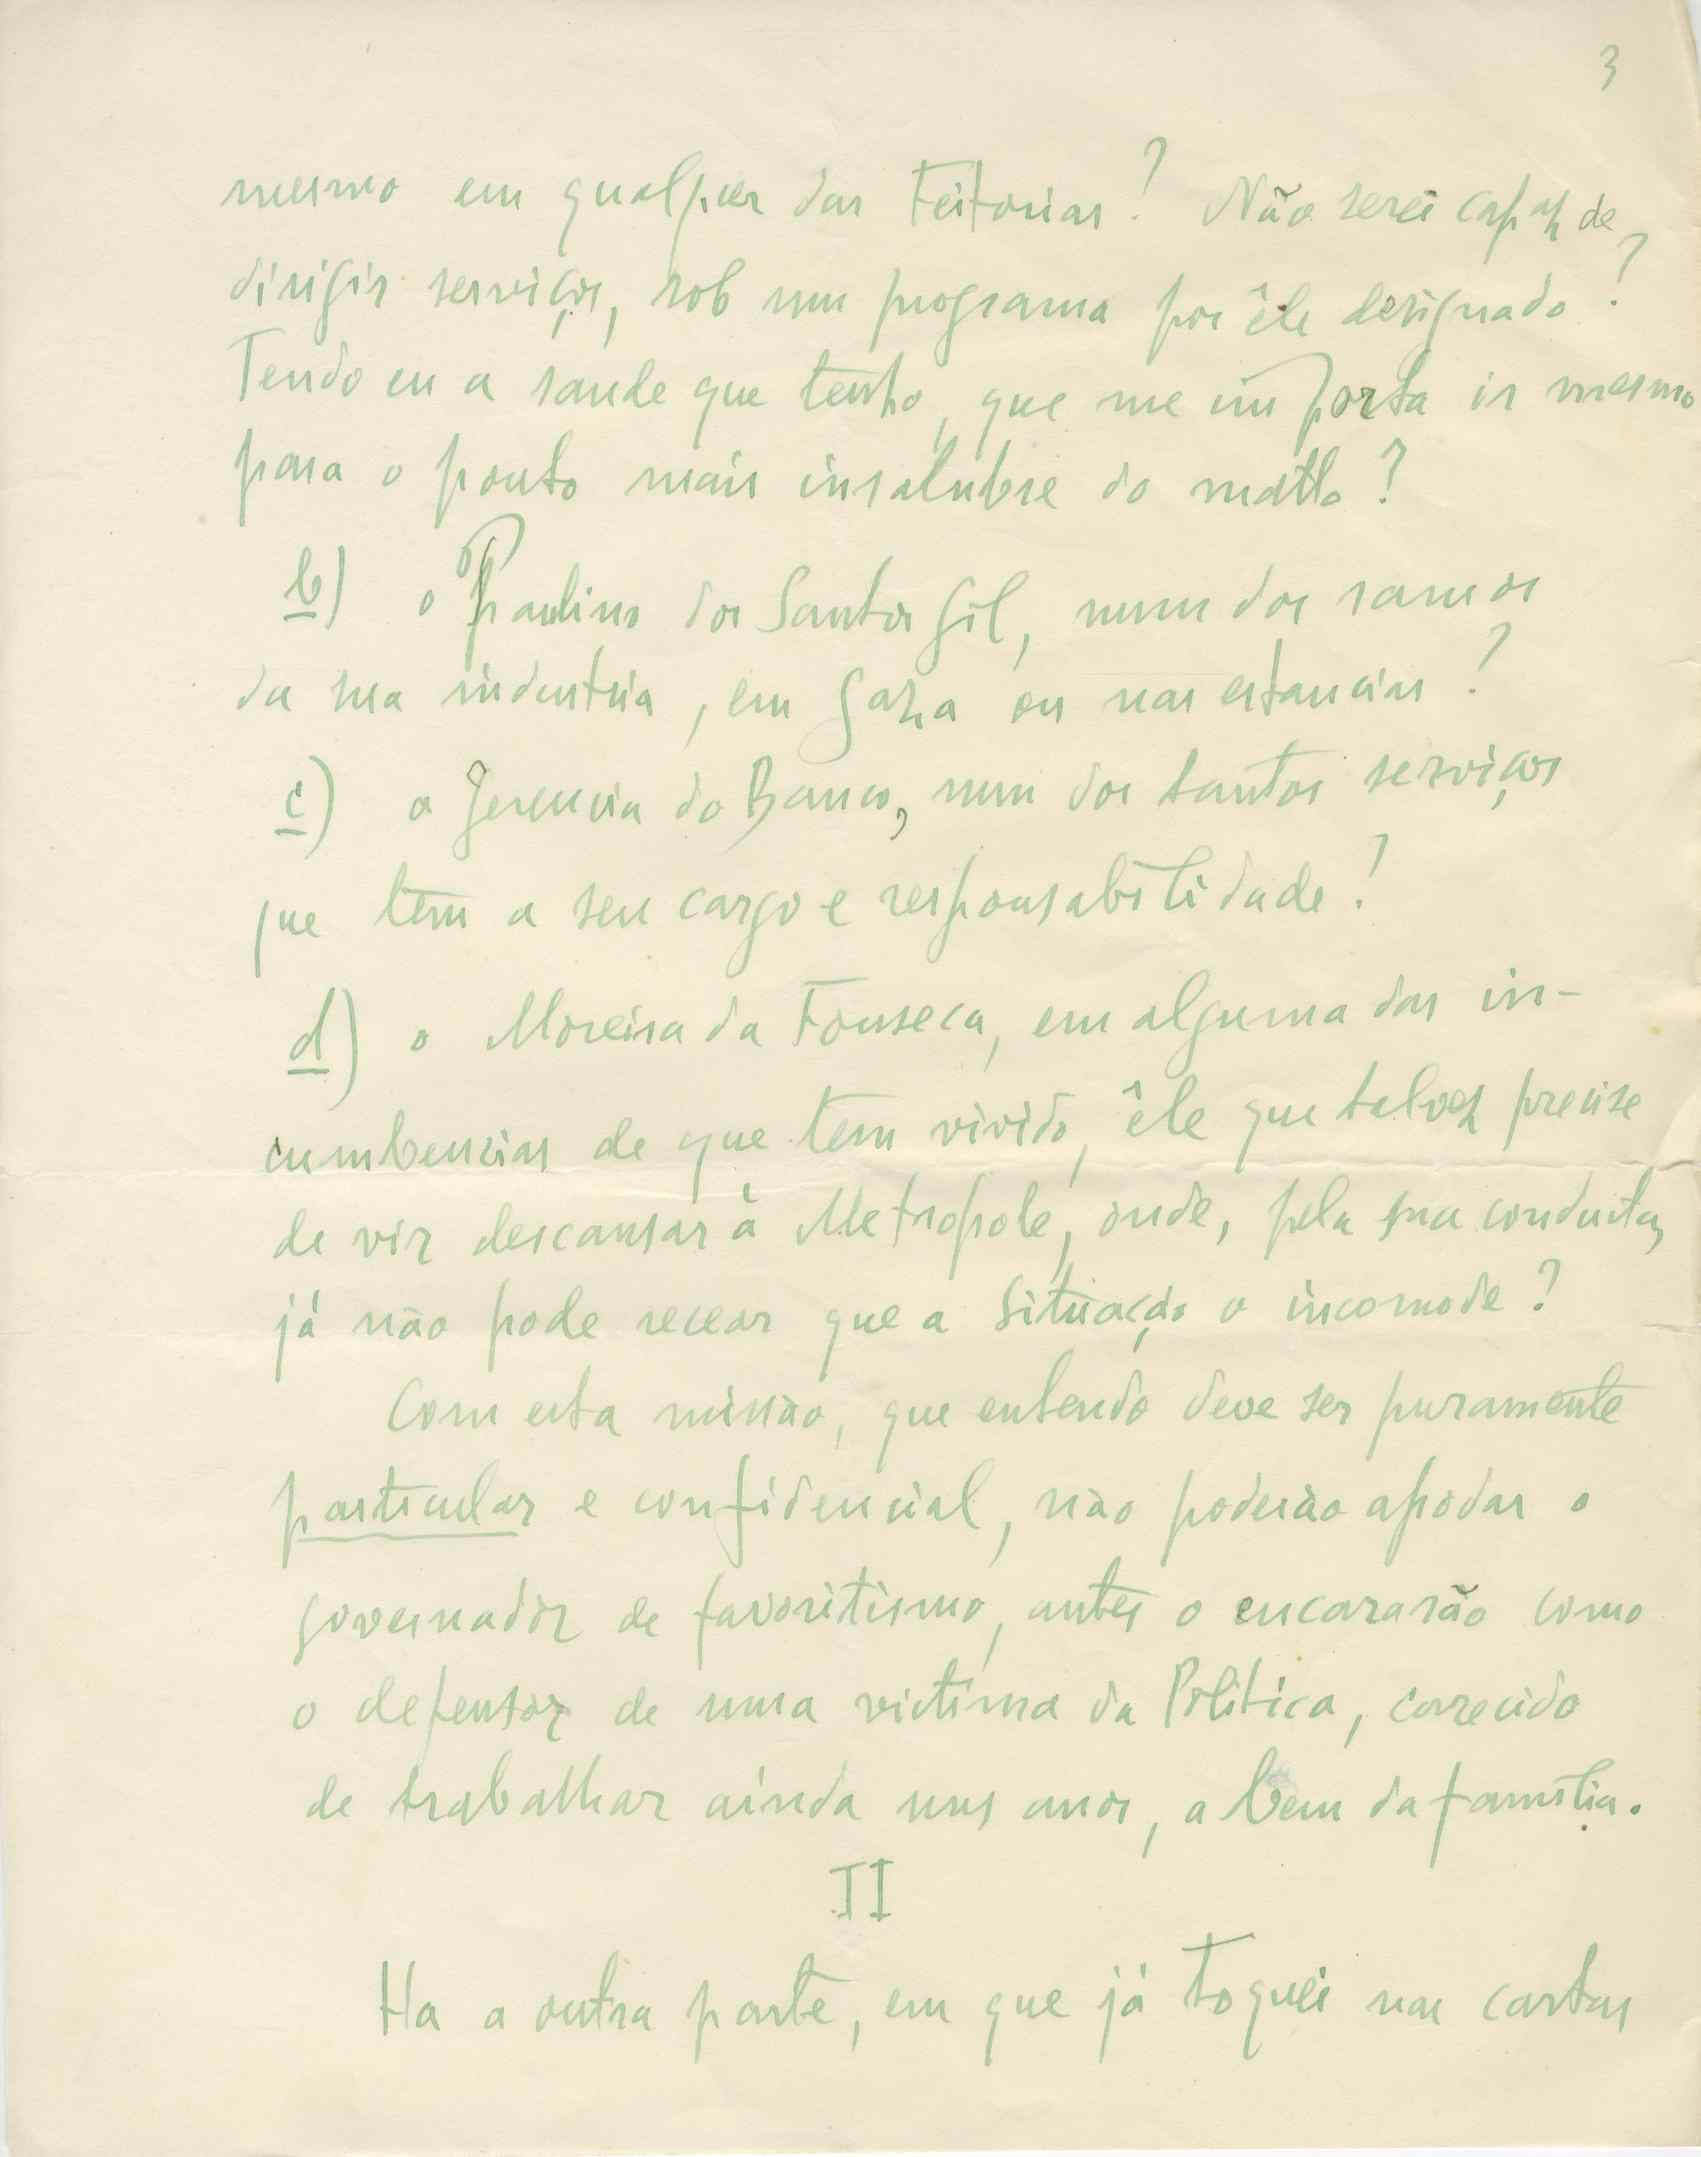 3
mesmo em qualquer das Feitorias? Não serei capaz de
dirigir serviços, sob um programa por êle designado?
Tendo eu a saude que tenho, que me importa ir mesmo
para o ponto mais insalubre do matto?
b) o Paulino dos Santos Gil, num dos ramos
da sua industria, em Gaza ou nas estancias?
c) a Gerencia do Banco, num dos tantos serviços
que tem a seu cargo e responsabilidade?
d) o Moreira da Fonseca, em alguma das in-
cumbencias de que tem vivido, êle que talvez precise
de vir descansar à Metropole, onde, pela sua conducta,
já não pode recear que a Situação o incomode?
Com esta missão, que entendo deve ser puramente
particular e confidencial, não poderão apodar o
governador de favoritismo, antes o encararão como
o defensor de uma victima da Politica, carecido
de trabalhar ainda uns anos, a bem da familia.
II
Ha a outra parte, em que já toquei nas cartas